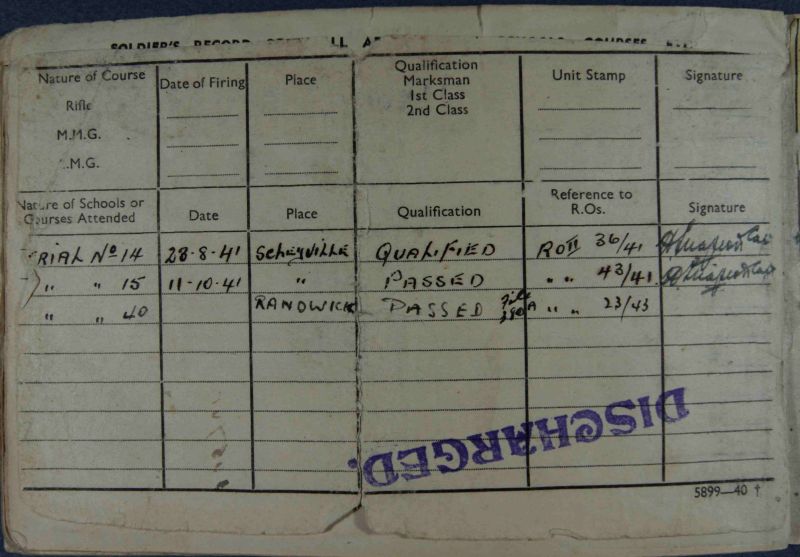 SOLDIER'S RECORD SCHOOLS COURSES
Nature of Course Date of Firing Place Qualification Unit Stamp Signature
Marksman
1st Class
2nd Class
Rifle
M.M.G.
.M.G.
Nature of Schools or Courses Attended Date Place Qualification Reference to R.Os. Signature
RIAL No 14 28-8-41 Scheyville QUALIFIED RO II 36/41
" " 15 11-10-41 " PASSED " " 43/41
" " 40 RANDWICK PASSED A " " 23/43
DISCHARGED.
5899—40 †